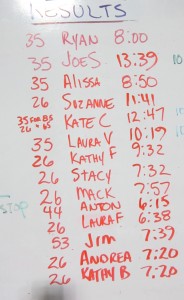 RESULTS
35 RYAN 8:00
35 JOES 13:39 10
35 ALISSA 8:50
26 SUZANNE 11:41
35 FOR BS 26 + 65 KATE C 12:47 10
35 LAURA V 10:19
26 KATHY F 9:32
26 STACY 7:32
26 MACK 7:57
44 ANTON 6:15
26 LAURA F 6:38
53 JIM 7:39
26 ANDREA 7:20
26 KATHY B 7:20